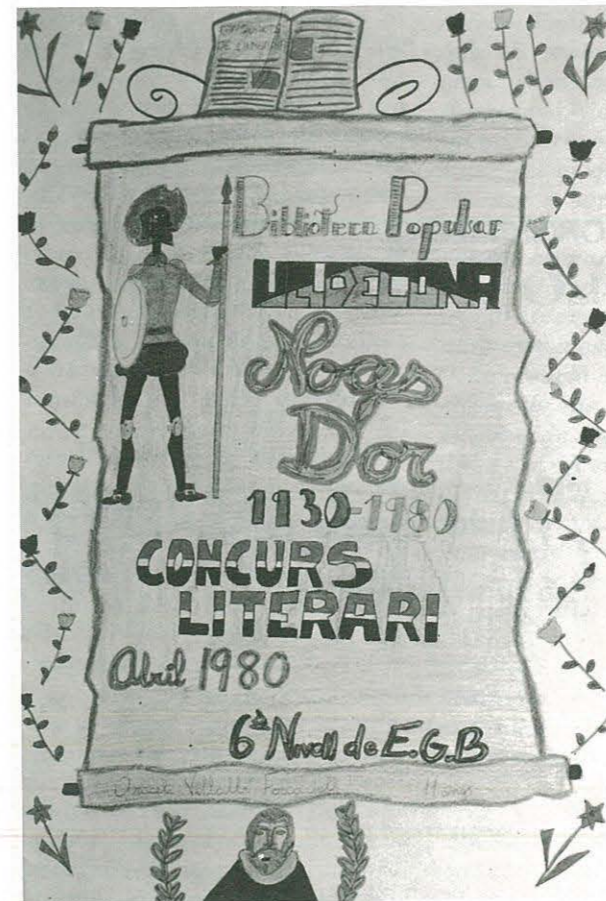 DE
Biblioteca Popular
ULLDECONA
Noçes
D'or
1930-1980
CONCURS
LITERARI
Abril 1980
6è Nivell de E.G.B
11 anys